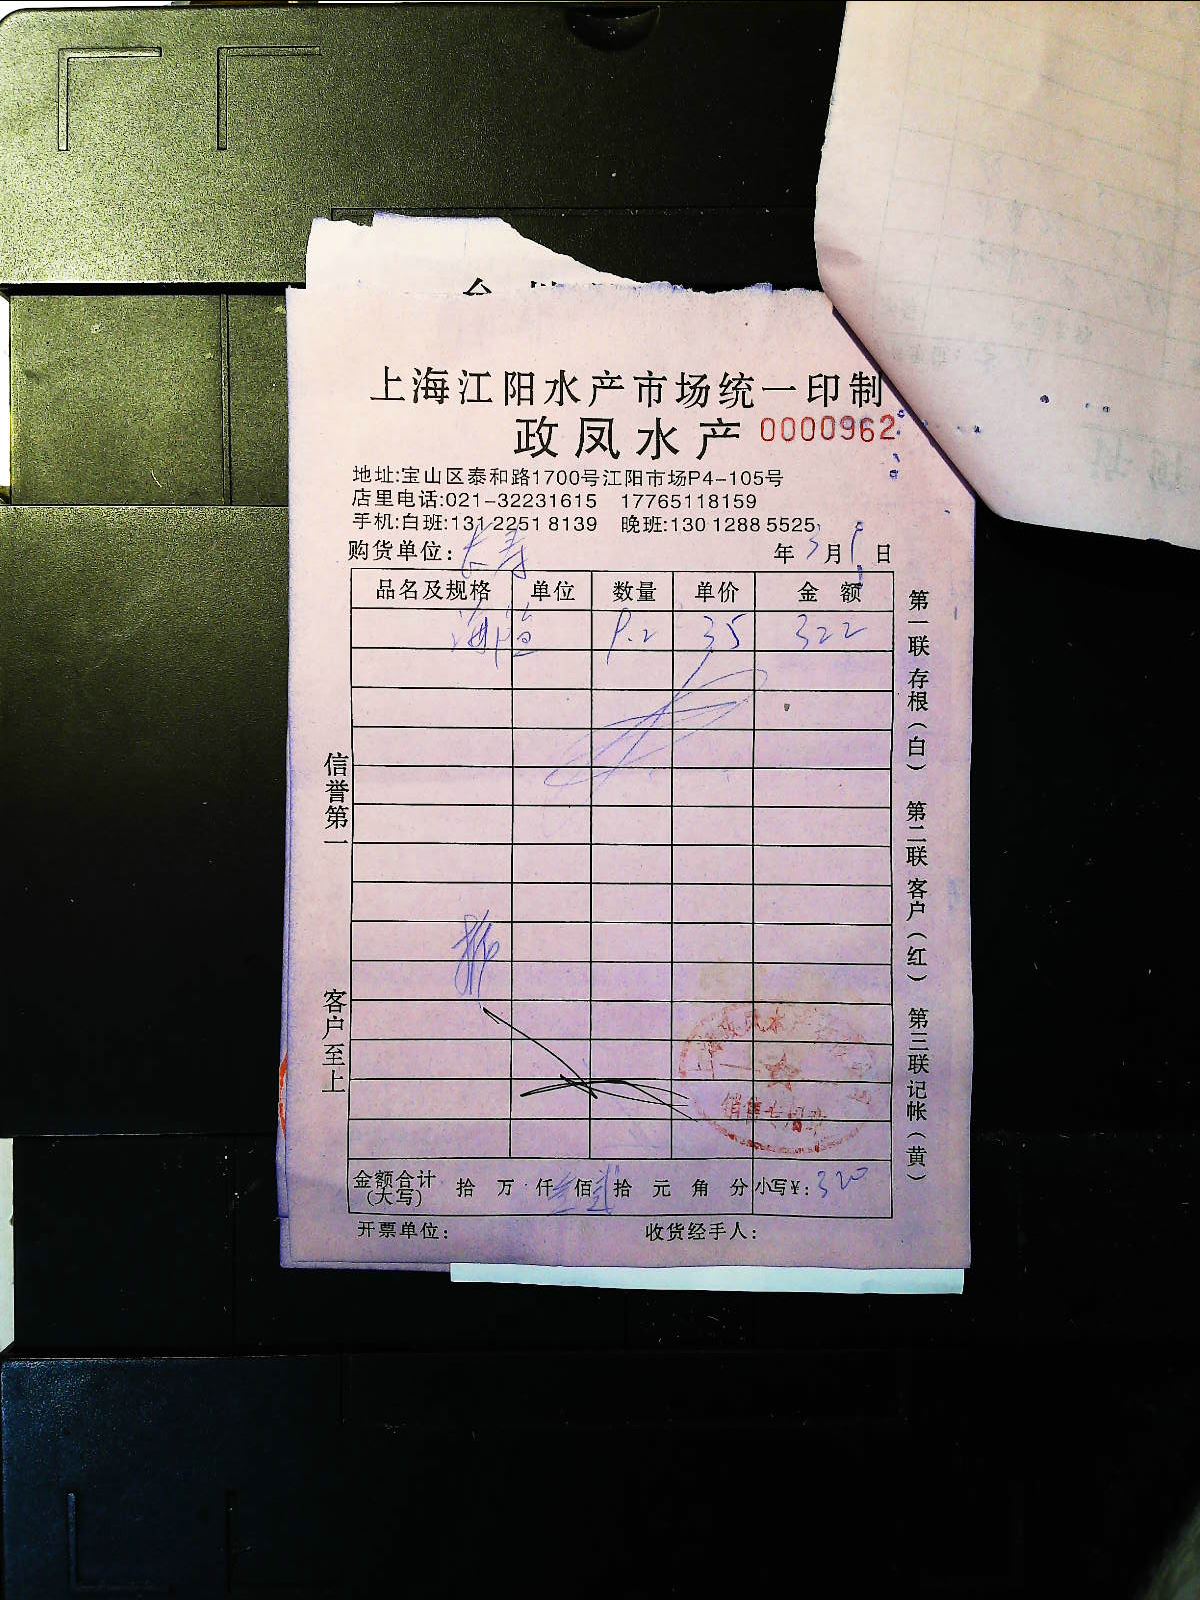 上海江阳水产市场统一印制
政凤水产 0000962
地址:宝山区泰和路1700号江阳市场P4-105号
店里电话:021-32231615 17765118159
手机:白班:131 2251 8139 晚班:130 1288 5525
购货单位: 长寿 年 3 月 日
品名及规格 单位 数量 单价 金额
35 322
信誉第一
客户至上
第一联 存根(白) 第二联 客户(红) 第三联 记帐(黄)
销售专用章
金额合计(大写) 拾 万 仟 叁 佰 贰 拾 元 角 分 小写¥: 320
开票单位: 收货经手人: